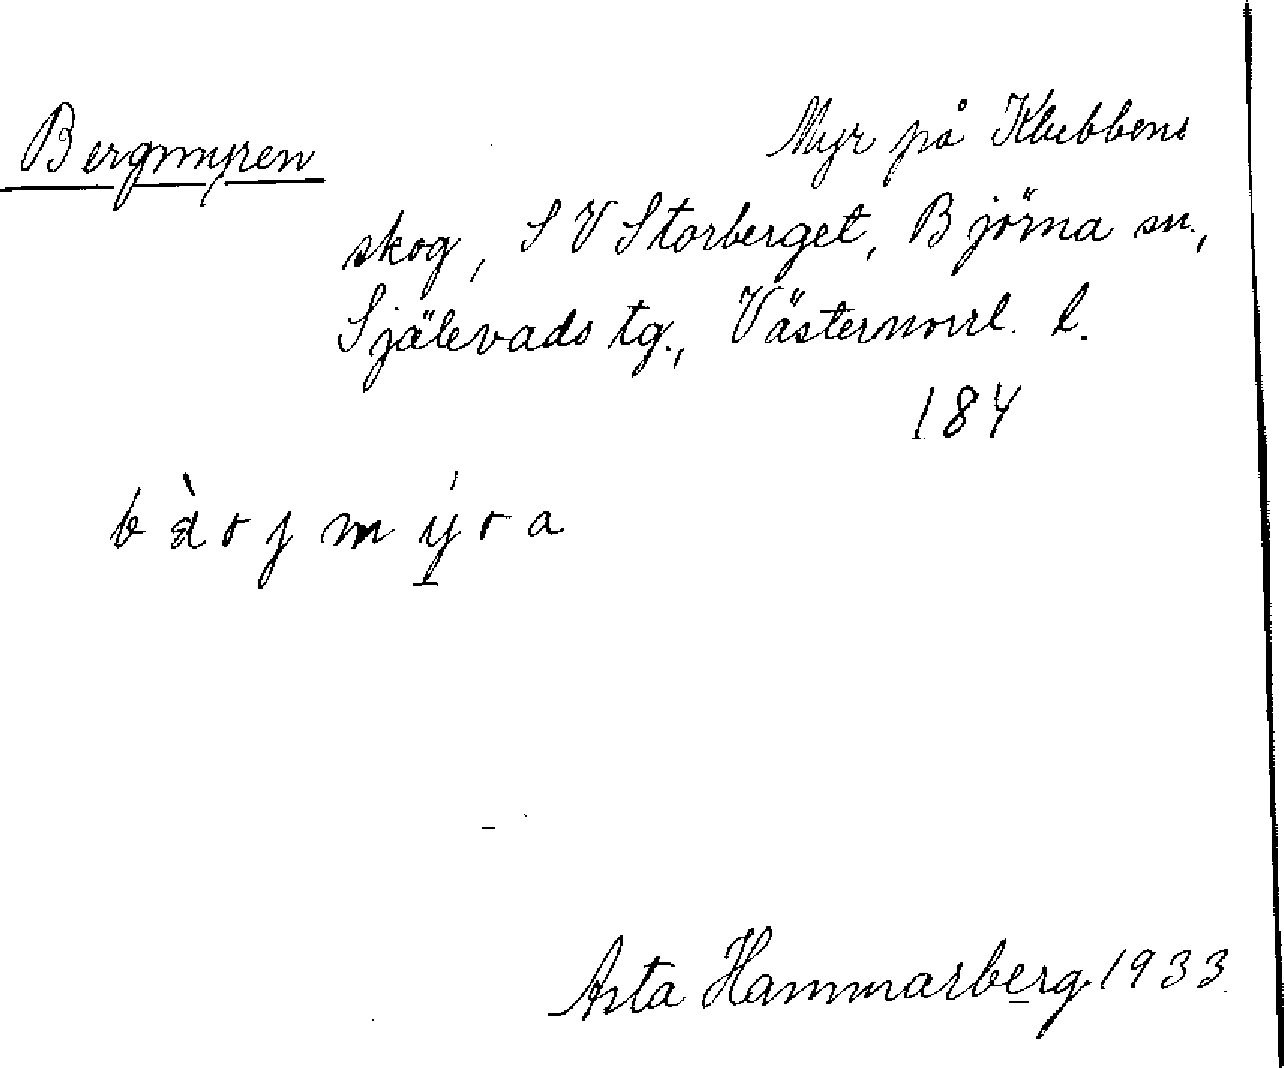 Bergmyren
Myr på Klubbens
skog, SV Storberget, Björna sn.,
Själevads tg., Västernorrl. l.
184
bàrjmýra
Asta Hammarberg 1933